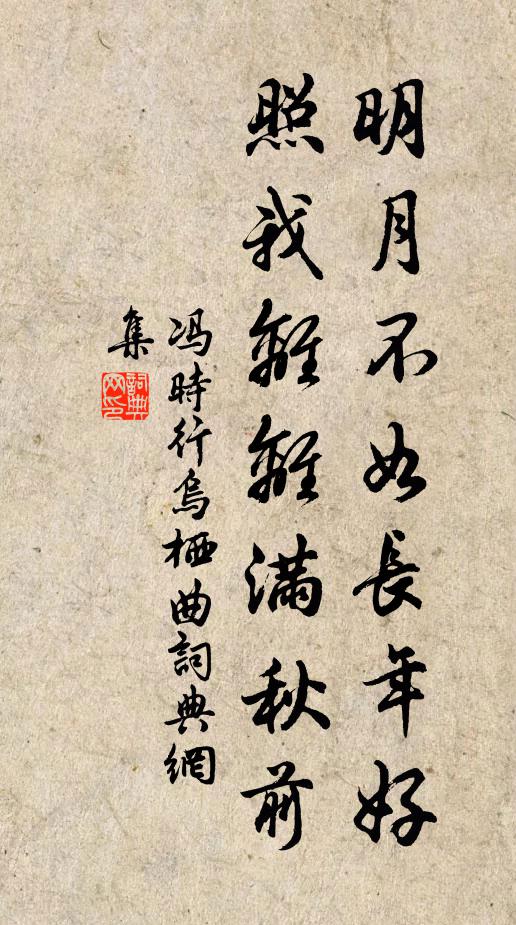 明月不如長年好
照我離離滿秋前
馮時行烏栖曲詞典網
集
詞典
网印